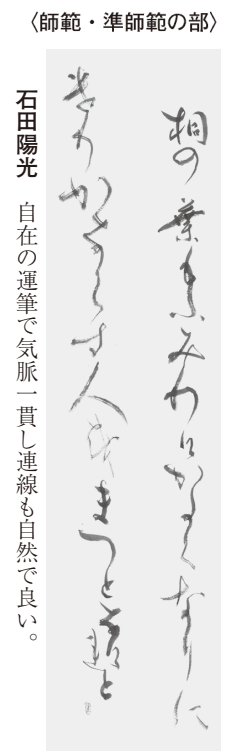 〈師範・準師範の部〉
桐の葉もふみわけかたくなりに
けりかならす人をまつとなけれと
石田陽光 自在の運筆で気脈一貫し連線も自然で良い。